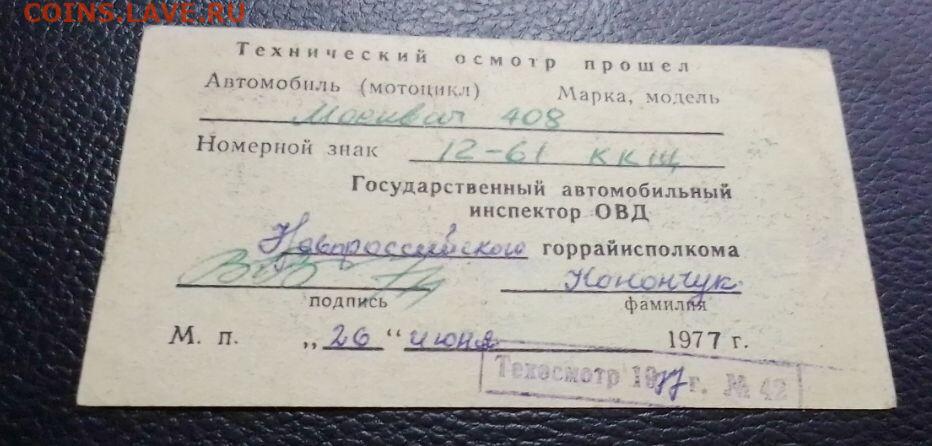 COINS.LAVE.RU
Технический осмотр прошел
Автомобиль (мотоцикл) Марка, модель
Москвич 408
Номерной знак 12-61 ККЩ
Государственный автомобильный
инспектор ОВД
Новороссийского горрайисполкома
Конончук
подпись фамилия
М. п. „26“ июня 1977 г.
Техосмотр 1977 г. № 42